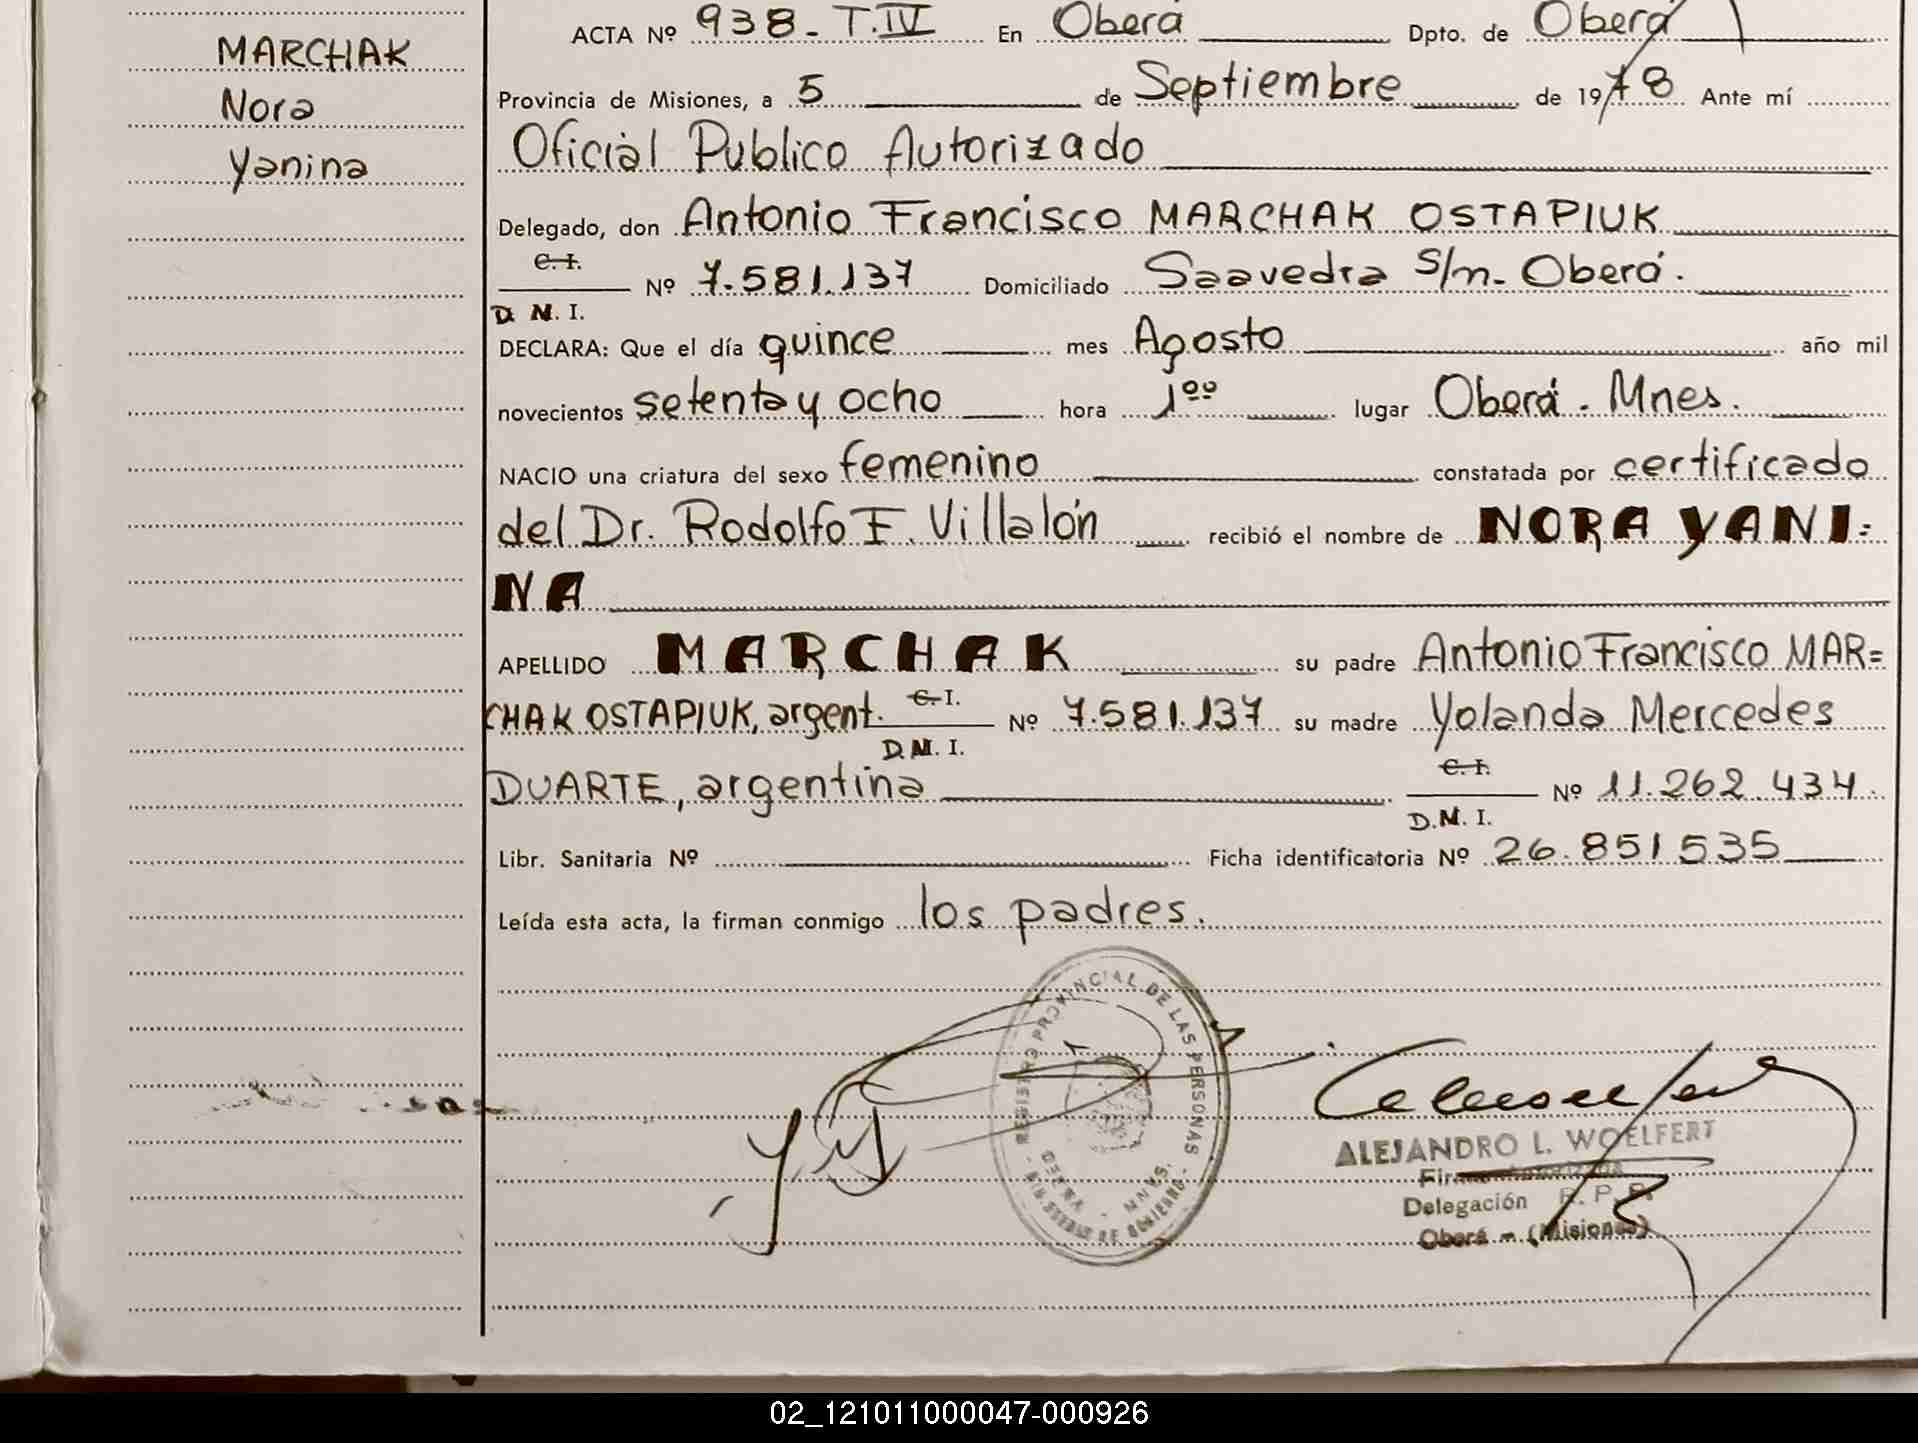 MARCHAK
Nora
Yanina
ACTA Nº 938 - T.IV En Oberá Dpto. de Oberá
Provincia de Misiones, a 5 de Septiembre de 1978 Ante mí
Oficial Publico Autorizado
Delegado, don Antonio Francisco MARCHAK OSTAPIUK
C. I.
Nº 7.581.137 Domiciliado Saavedra s/n. Oberá.
D. N. I.
DECLARA: Que el día quince mes Agosto año mil
novecientos setenta y ocho hora 1ºº lugar Oberá. Mnes.
NACIO una criatura del sexo femenino constatada por certificado
del Dr. Rodolfo F. Villalón recibió el nombre de NORA YANI=
NA
APELLIDO MARCHAK su padre Antonio Francisco MAR=
CHAK OSTAPIUK, argent. C. I. Nº 7.581.137 su madre Yolanda Mercedes
D. N. I.
DUARTE, argentina C. I. Nº 11.262.434.
D. N. I.
Libr. Sanitaria Nº Ficha identificatoria Nº 26.851535
Leída esta acta, la firman conmigo los padres.
REGISTRO PROVINCIAL DE LAS PERSONAS
ALEJANDRO L. WOELFERT
Delegación R. P. P.
Oberá - (Misiones)
02_121011000047-000926